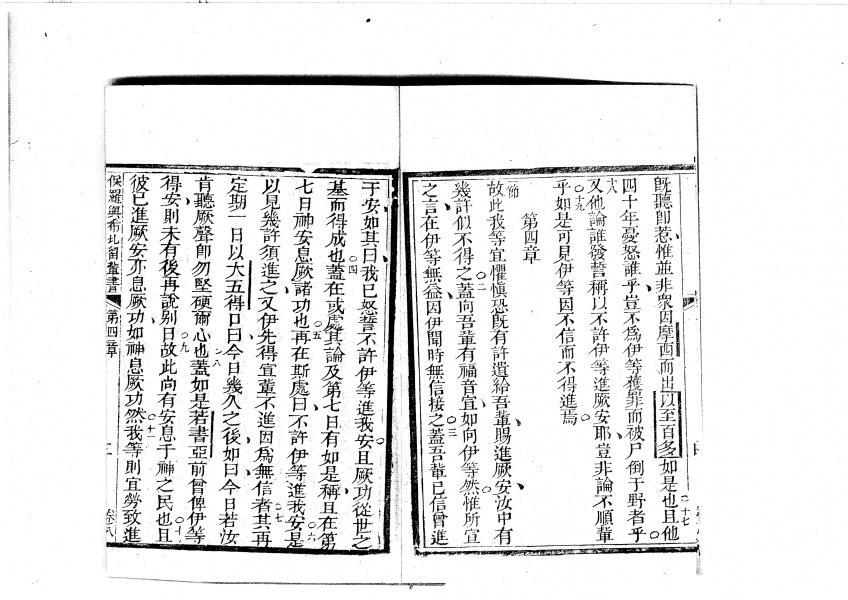 既聽卽惹惟並非衆因摩西而出以至百多如是也且他
四十年憂怒誰乎豈不爲伊等獲罪而被尸倒于野者乎
又他論誰發誓稱以不許伊等進厥安耶豈非論不順輩
乎如是可見伊等因不信而不得進焉
第四章
故此我等宜懼愼恐旣有許遺給吾輩賜進厥安汝中有
幾許似不得之蓋向吾輩有福音宜如向伊等然惟所宣
之言在伊等無益因伊聞時無信接之蓋吾輩已信曾進
于安如其曰我已怒誓不許伊等進我安且厥功從世之
基而得成也蓋在或處其論及第七日有如是稱且在第
七日神安息厥諸功也再在斯處曰不許伊等進我安是
以見幾許須進之又伊先得宣輩不進因爲無信者其再
定期一日以大五得口曰今日幾久之後如曰今日若汝
肯聽厥聲卽勿堅硬爾心也蓋如是若書亞前曾俾伊等
得安則未有後再說别日故此尚有安息于神之民也且
彼已進厥安亦息厥功如神息厥功然我等則宜勞致進
第四章